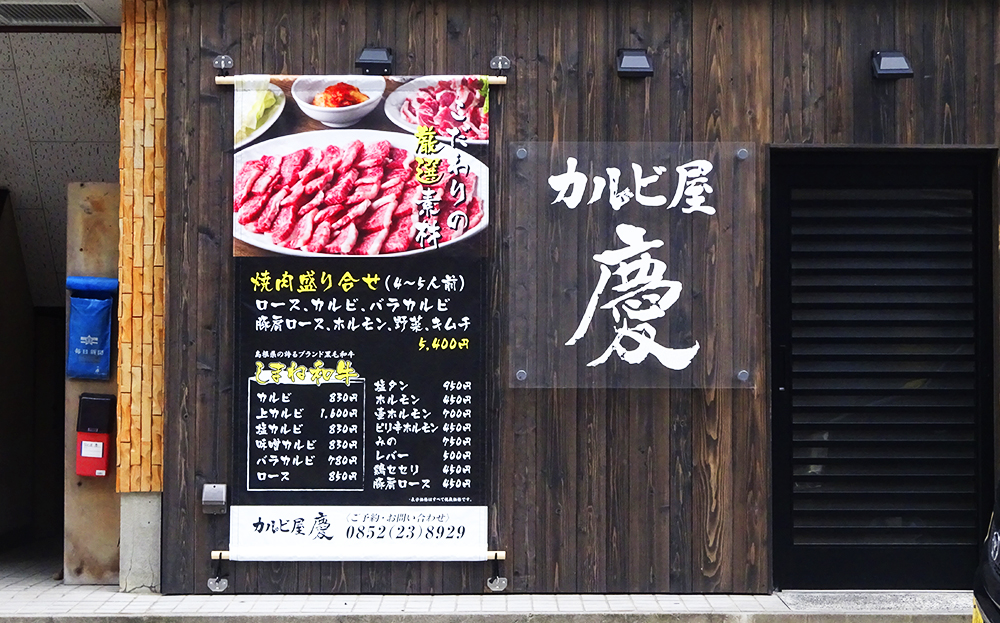 こだわりの
厳選素材
焼肉盛り合せ(4~5人前)
ロース、カルビ、バラカルビ
豚肩ロース、ホルモン、野菜、キムチ
5,400円
島根県の誇るブランド黒毛和牛
しまね和牛
カルビ 830円
上カルビ 1,600円
塩カルビ 830円
味噌カルビ 830円
バラカルビ 780円
ロース 850円
塩タン 950円
ホルモン 450円
並ホルモン 700円
ピリ辛ホルモン 450円
みの 750円
レバー 500円
鶏セセリ 450円
豚肩ロース 450円
・表示価格はすべて税抜価格です。
カルビ屋 慶
〈ご予約・お問い合わせ〉
0852(23)8929
カルビ屋
慶
毎日新聞